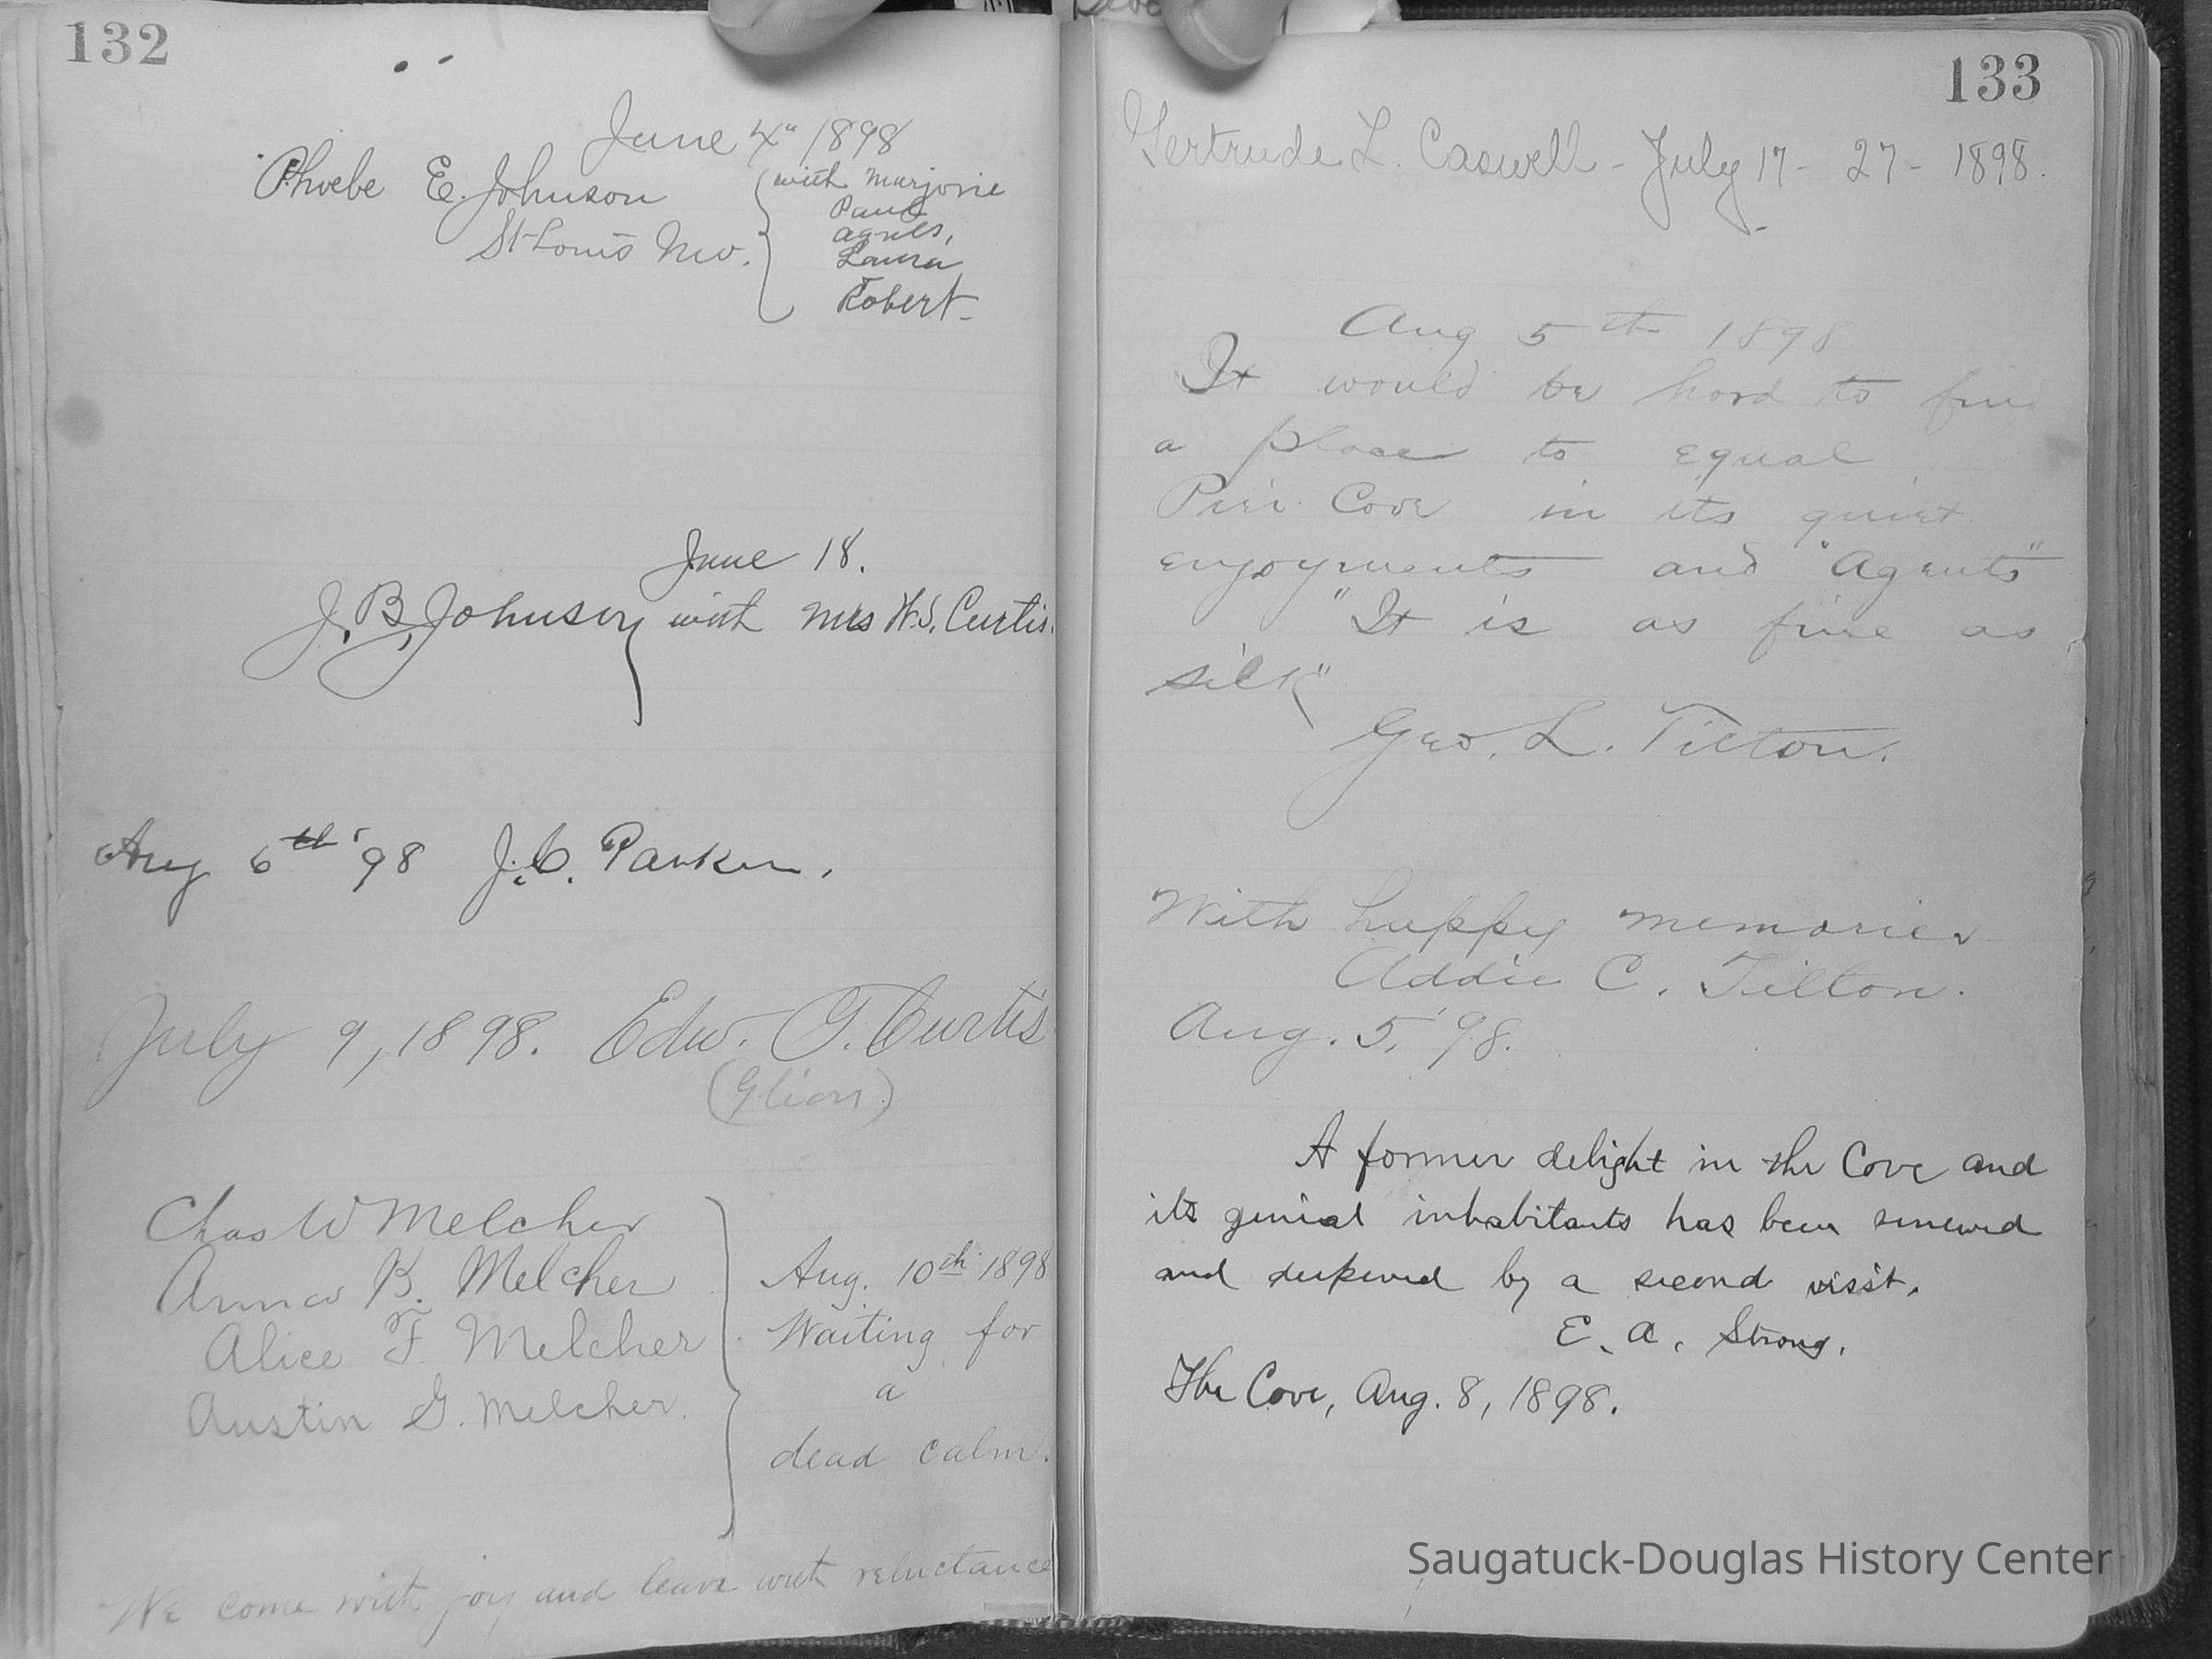 132
June 4" 1898
Phoebe E. Johnson
St Louis Mo.
with Marjorie
Paul
Agnes,
Laura
Robert
June 18.
J. B. Johnson with Mrs W. S. Curtis.
Aug 6th '98 J. C. Parker.
July 9, 1898. Edw. T. Curtis
(Glion)
Chas W Melcher
Anna K. Melcher
Alice F. Melcher
Austin G. Melcher.
Aug. 10th 1898
Waiting for
a
dead calm.
We come with joy and leave with reluctance
133
Gertrude L. Caswell - July 17 - 27 - 1898.
Aug 5th 1898
It would be hard to find
a place to equal
Pier Cove in its quiet
enjoyments and "Agents"
"It is as fine as
silk"
Geo. L. Tilton.
With happy memories
Addie C. Tilton.
Aug. 5, '98.
A former delight in the Cove and
its genial inhabitants has been renewed
and deepened by a second visit.
E. A. Strong.
The Cove, Aug. 8, 1898.
Saugatuck-Douglas History Center